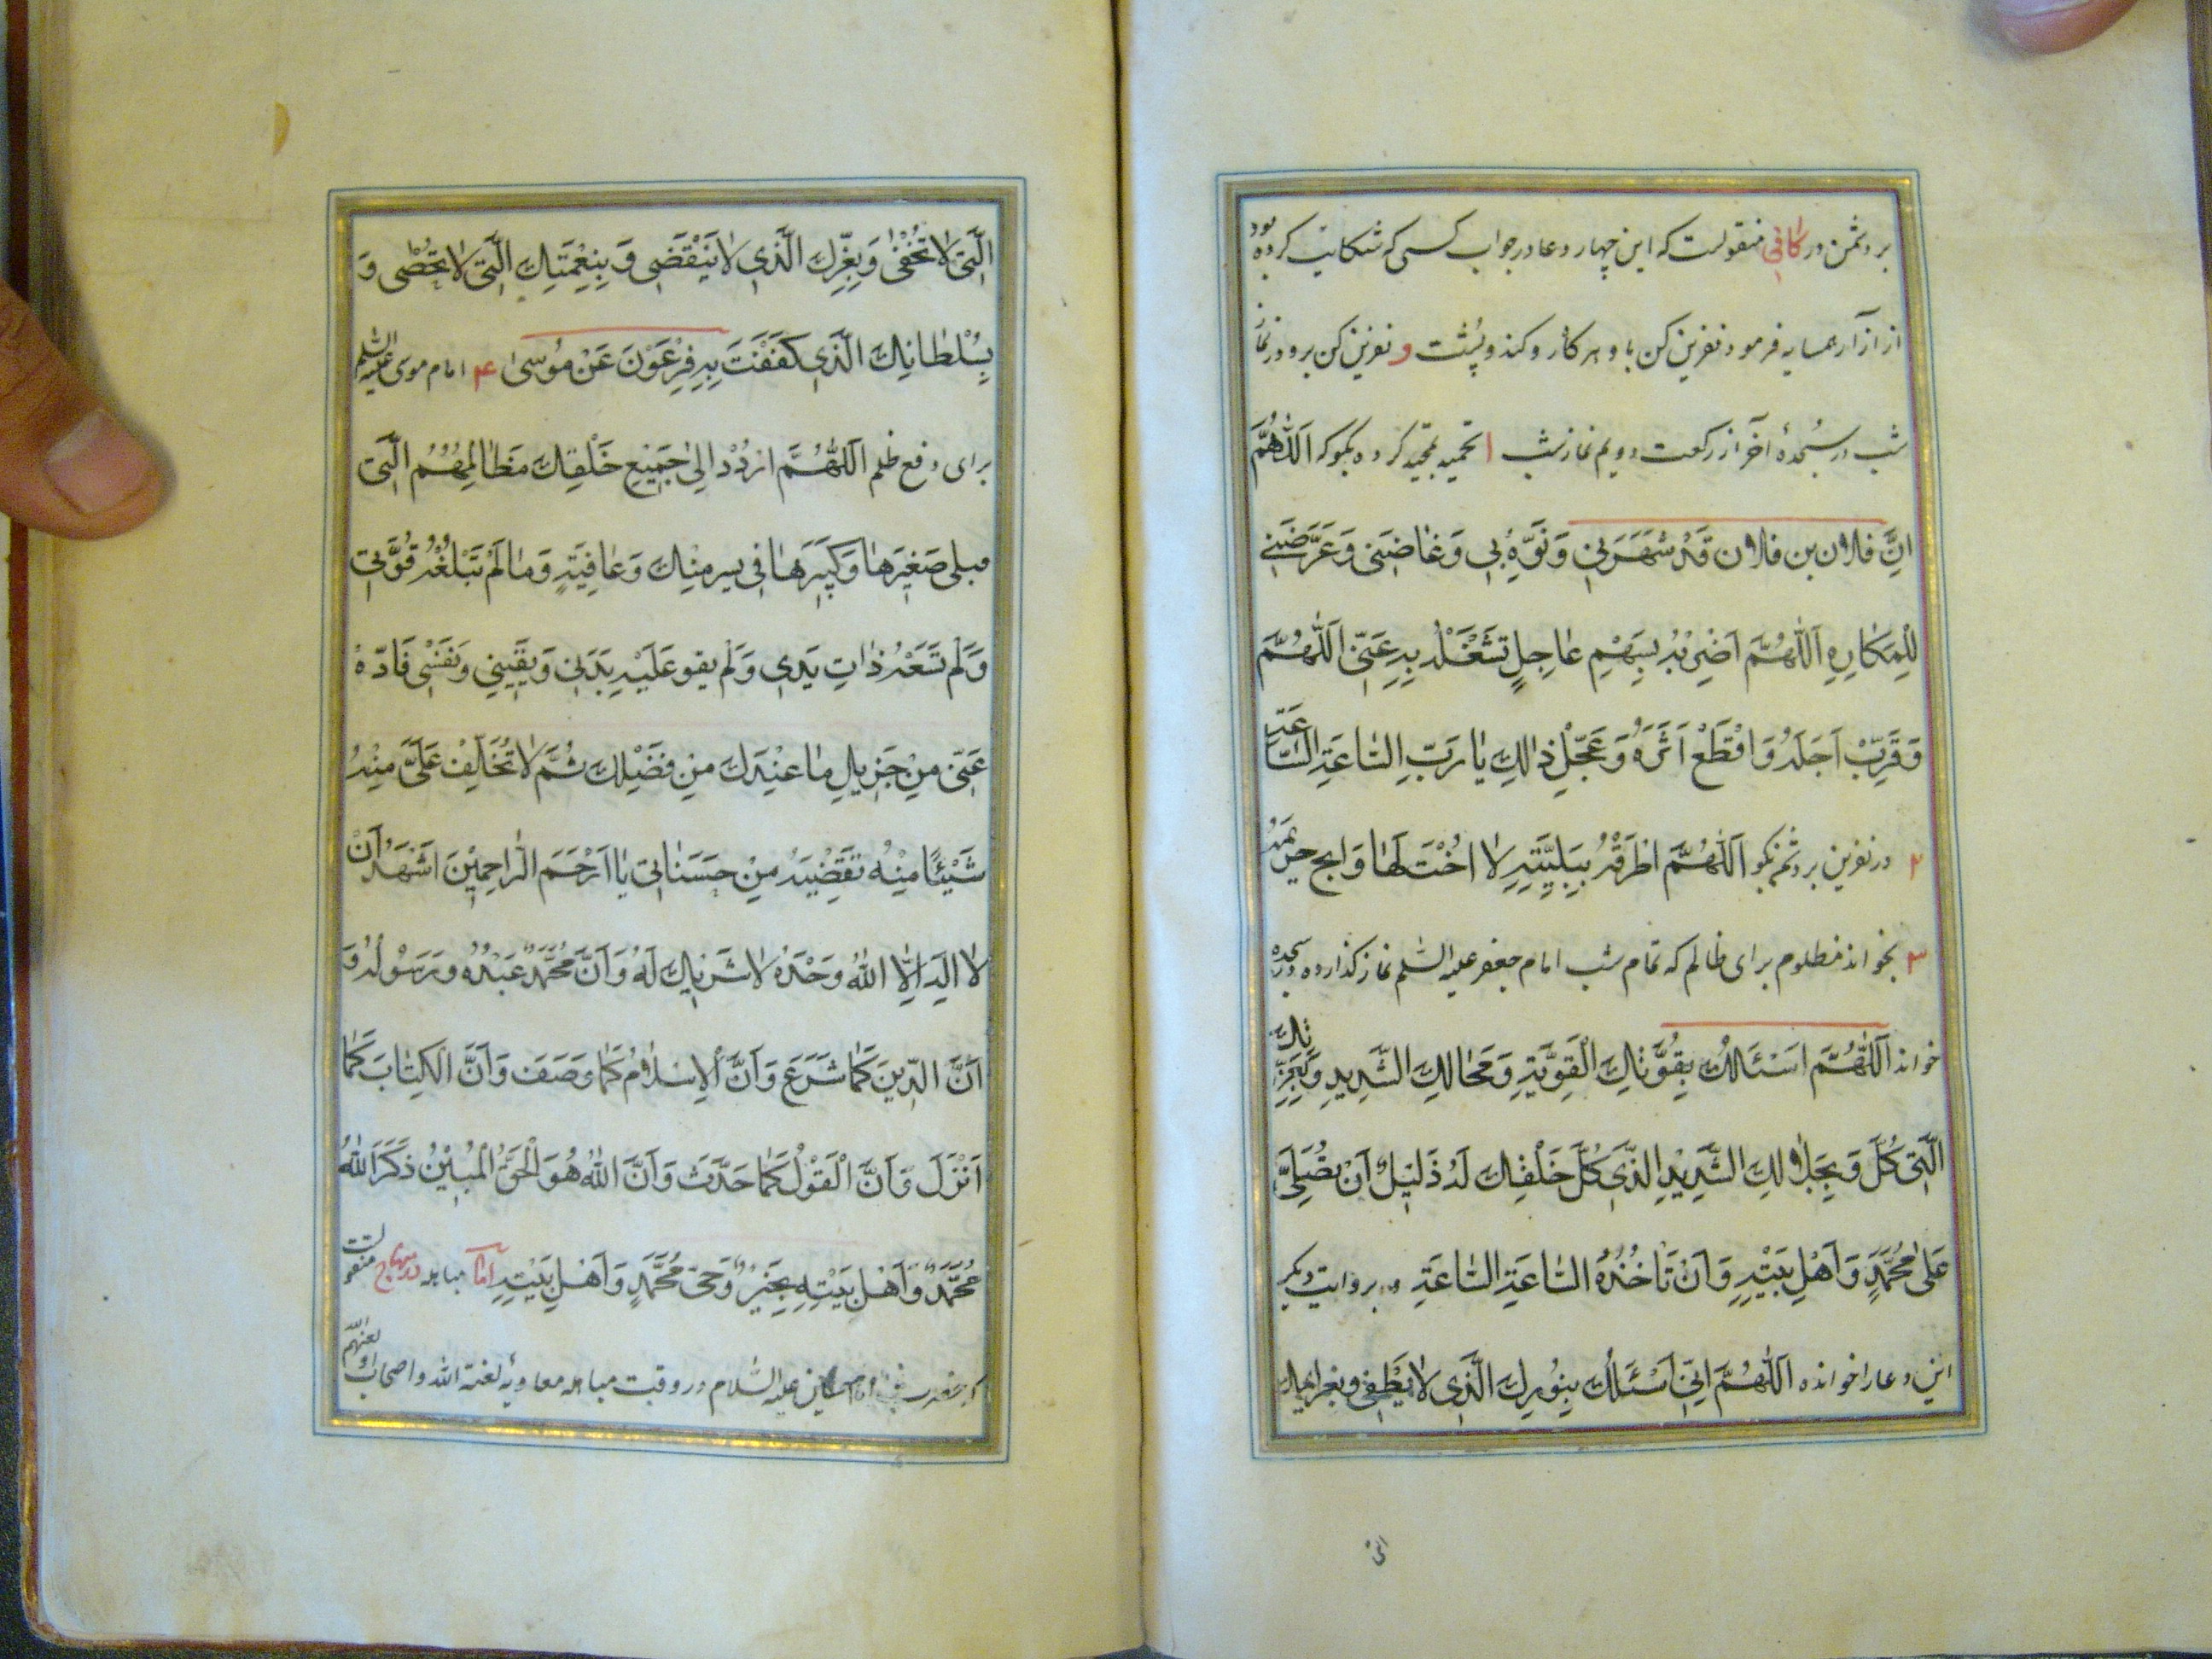 بر دشمن در کافی منقولست که این چهار دعا در جواب کسی که شکایت کرده بود
از آزار همسایه فرمود نفرین کن باو هرگاه رو کند و پشت و نفرین کن برو در نماز
شب در سجدهٔ آخر از رکعت دویم نماز شب ۱ تحمید تمجید کرده بگو که اَللّٰهُمَّ
اِنَّ فلان بن فلان قَدْ شَهَرَنِي وَنَوَّهَ بِي وَغَاضَنِي وَعَرَّضَنِي
لِلْمَكَارِهِ اَللّٰهُمَّ اَضْرِبْهُ بِسَهْمٍ عَاجِلٍ تَشْغَلْهُ بِهِ عَنِّي اَللّٰهُمَّ
وَقَرِّبْ اَجَلَهُ وَاقْطَعْ اَثَرَهُ وَعَجِّلْ ذٰلِكَ يَا رَبِّ السَّاعَةَ السَّاعَةَ
۲ در نفرین بر دشمن بگو اَللّٰهُمَّ اطْرُقْهُ بِبَلِيَّةٍ لَا اُخْتَ لَهَا وَابح حريمه
۳ بخواند مظلوم برای ظالم که تمام شب امام جعفر علیه السّلم نماز گذارده و در سجده
خواند اَللّٰهُمَّ اَسْئَلُكَ بِقُوَّتِكَ الْقَوِيَّةِ وَمَحَالِكَ الشَّدِيدِ وَبِعِزَّتِكَ
الَّتِي كُلَّ وَبِجَلَالِكَ الشَّدِيدِ الَّذِي كُلُّ خَلْقِكَ لَهُ ذَلِيلٌ اَنْ تُصَلِّيَ
عَلٰى مُحَمَّدٍ وَاَهْلِ بَيْتِهِ وَاَنْ تَأْخُذَهُ السَّاعَةَ السَّاعَةَ و بروایت دیگر
این دعا را خوانده اَللّٰهُمَّ اِنِّي اَسْئَلُكَ بِنُورِكَ الَّذِي لَا يُطْفٰى وبعزايمك
الَّتِي لَا تُخْفٰى وَبِعِزِّكَ الَّذِي لَا يَنْقَضِي وَبِنِعْمَتِكَ الَّتِي لَا تُحْصٰى وَ
بِسُلْطَانِكَ الَّذِي كَفَفْتَ بِهِ فِرْعَوْنَ عَنْ مُوسٰى ۴ امام موسی علیه السّلم
برای دفع ظلم اَللّٰهُمَّ ارْدُدْ اِلٰى جَمِيعِ خَلْقِكَ مَظَالِمَهُمُ الَّتِي
قبلى صَغِيرَهَا وَكَبِيرَهَا فِي يسر مِنْكَ وَعَافِيَةٍ وَمَا لَمْ تَبْلُغْهُ قُوَّتِي
وَلَمْ تَسَعْهُ ذَاتِ يَدِي وَلَمْ يقو عَلَيْهِ بَدَنِي وَيَقِينِي وَنَفْسِي فَادّه
عَنِّي مِنْ جَزِيلِ مَا عِنْدَكَ مِنْ فَضْلِكَ ثُمَّ لَا تُخَلِّفْ عَلَيَّ مِنْهُ
شَيْئًا مِنْهُ تَقْضِيهِ مِنْ حَسَنَاتِي يَا اَرْحَمَ الرَّاحِمِينَ اَشْهَدُ اَنْ
لَا اِلٰهَ اِلَّا اللّٰهُ وَحْدَهُ لَا شَرِيكَ لَهُ وَاَنَّ مُحَمَّدً عَبْدُهُ وَرَسُولُهُ وَ
اَنَّ الدِّينَ كَمَا شَرَعَ وَاَنَّ الْاِسْلَامَ كَمَا وَصَفَ وَاَنَّ الْكِتَابَ كَمَا
اَنْزَلَ وَاَنَّ الْقَوْلَ كَمَا حَدَّثَ وَاَنَّ اللّٰهَ هُوَ الْحَقُّ الْمُبِينُ ذَكَرَ اللّٰهُ
مُحَمَّدً وَاَهْلَ بَيْتِهِ بِخَيْرٍ وَحَيّ مُحَمَّدٍ وَاَهْلِ بَيْتِهِ امّا مباهله در منهاج منقولست
که حضرت امام حسین علیه السّلام در وقت مباهله معاویه لعنة الله و اصحاب او لعنهم الله